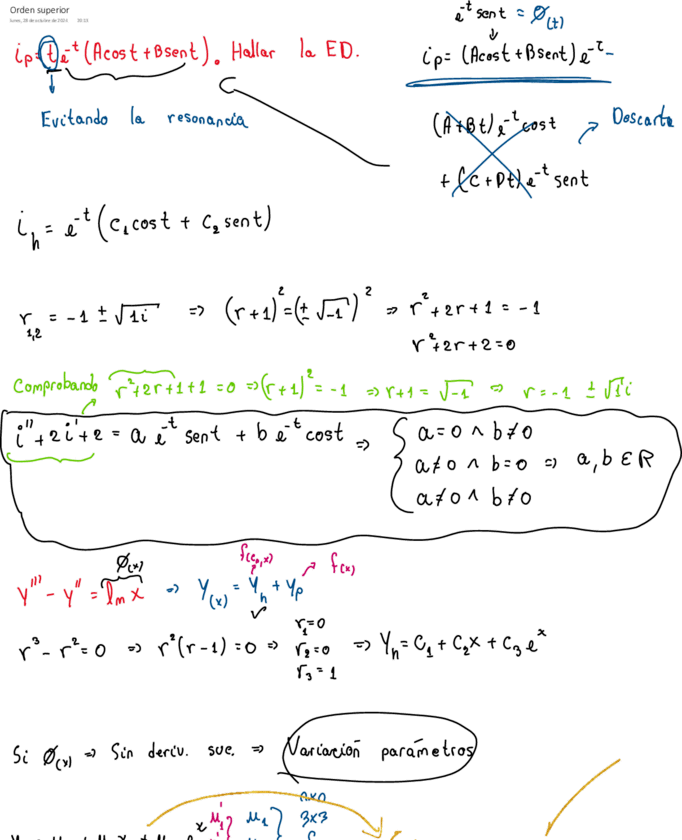 Orden superior
lunes, 30 de octubre de 2023 20:33
e^-t sent = Ø(t)
↓
ip = t e^-t (Acost + Bsent). Hallar la ED.
ip = (Acost + Bsent) e^-t
Evitando la resonancia
(A+Bt) e^-t cost
+ (C+Dt) e^-t sent
Descarta
i_h = e^-t (C₁cost + C₂ sent)
r₁,₂ = -1 ± √1i => (r+1)² = (± √-1)² => r² + 2r + 1 = -1
r² + 2r + 2 = 0
Comprobando r²+2r+1+1 = 0 => (r+1)² = -1 => r+1 = √-1 => r = -1 ± √1 i
i'' + 2i' + 2 = a e^-t sent + b e^-t cost =>
a=0 ∧ b≠0
a≠0 ∧ b=0 => a,b ∈ R
a≠0 ∧ b≠0
Ø(x)
y''' - y'' = ln x => Y(x) = Y_h + Y_p
f(x)
r³ - r² = 0 => r²(r-1) = 0 =>
r₁=0
r₂=0
r₃=1
=> Y_h = C₁ + C₂x + C₃e^x
Si Ø(x) => Sin deriv. suc. => Variación parámetros
3x3